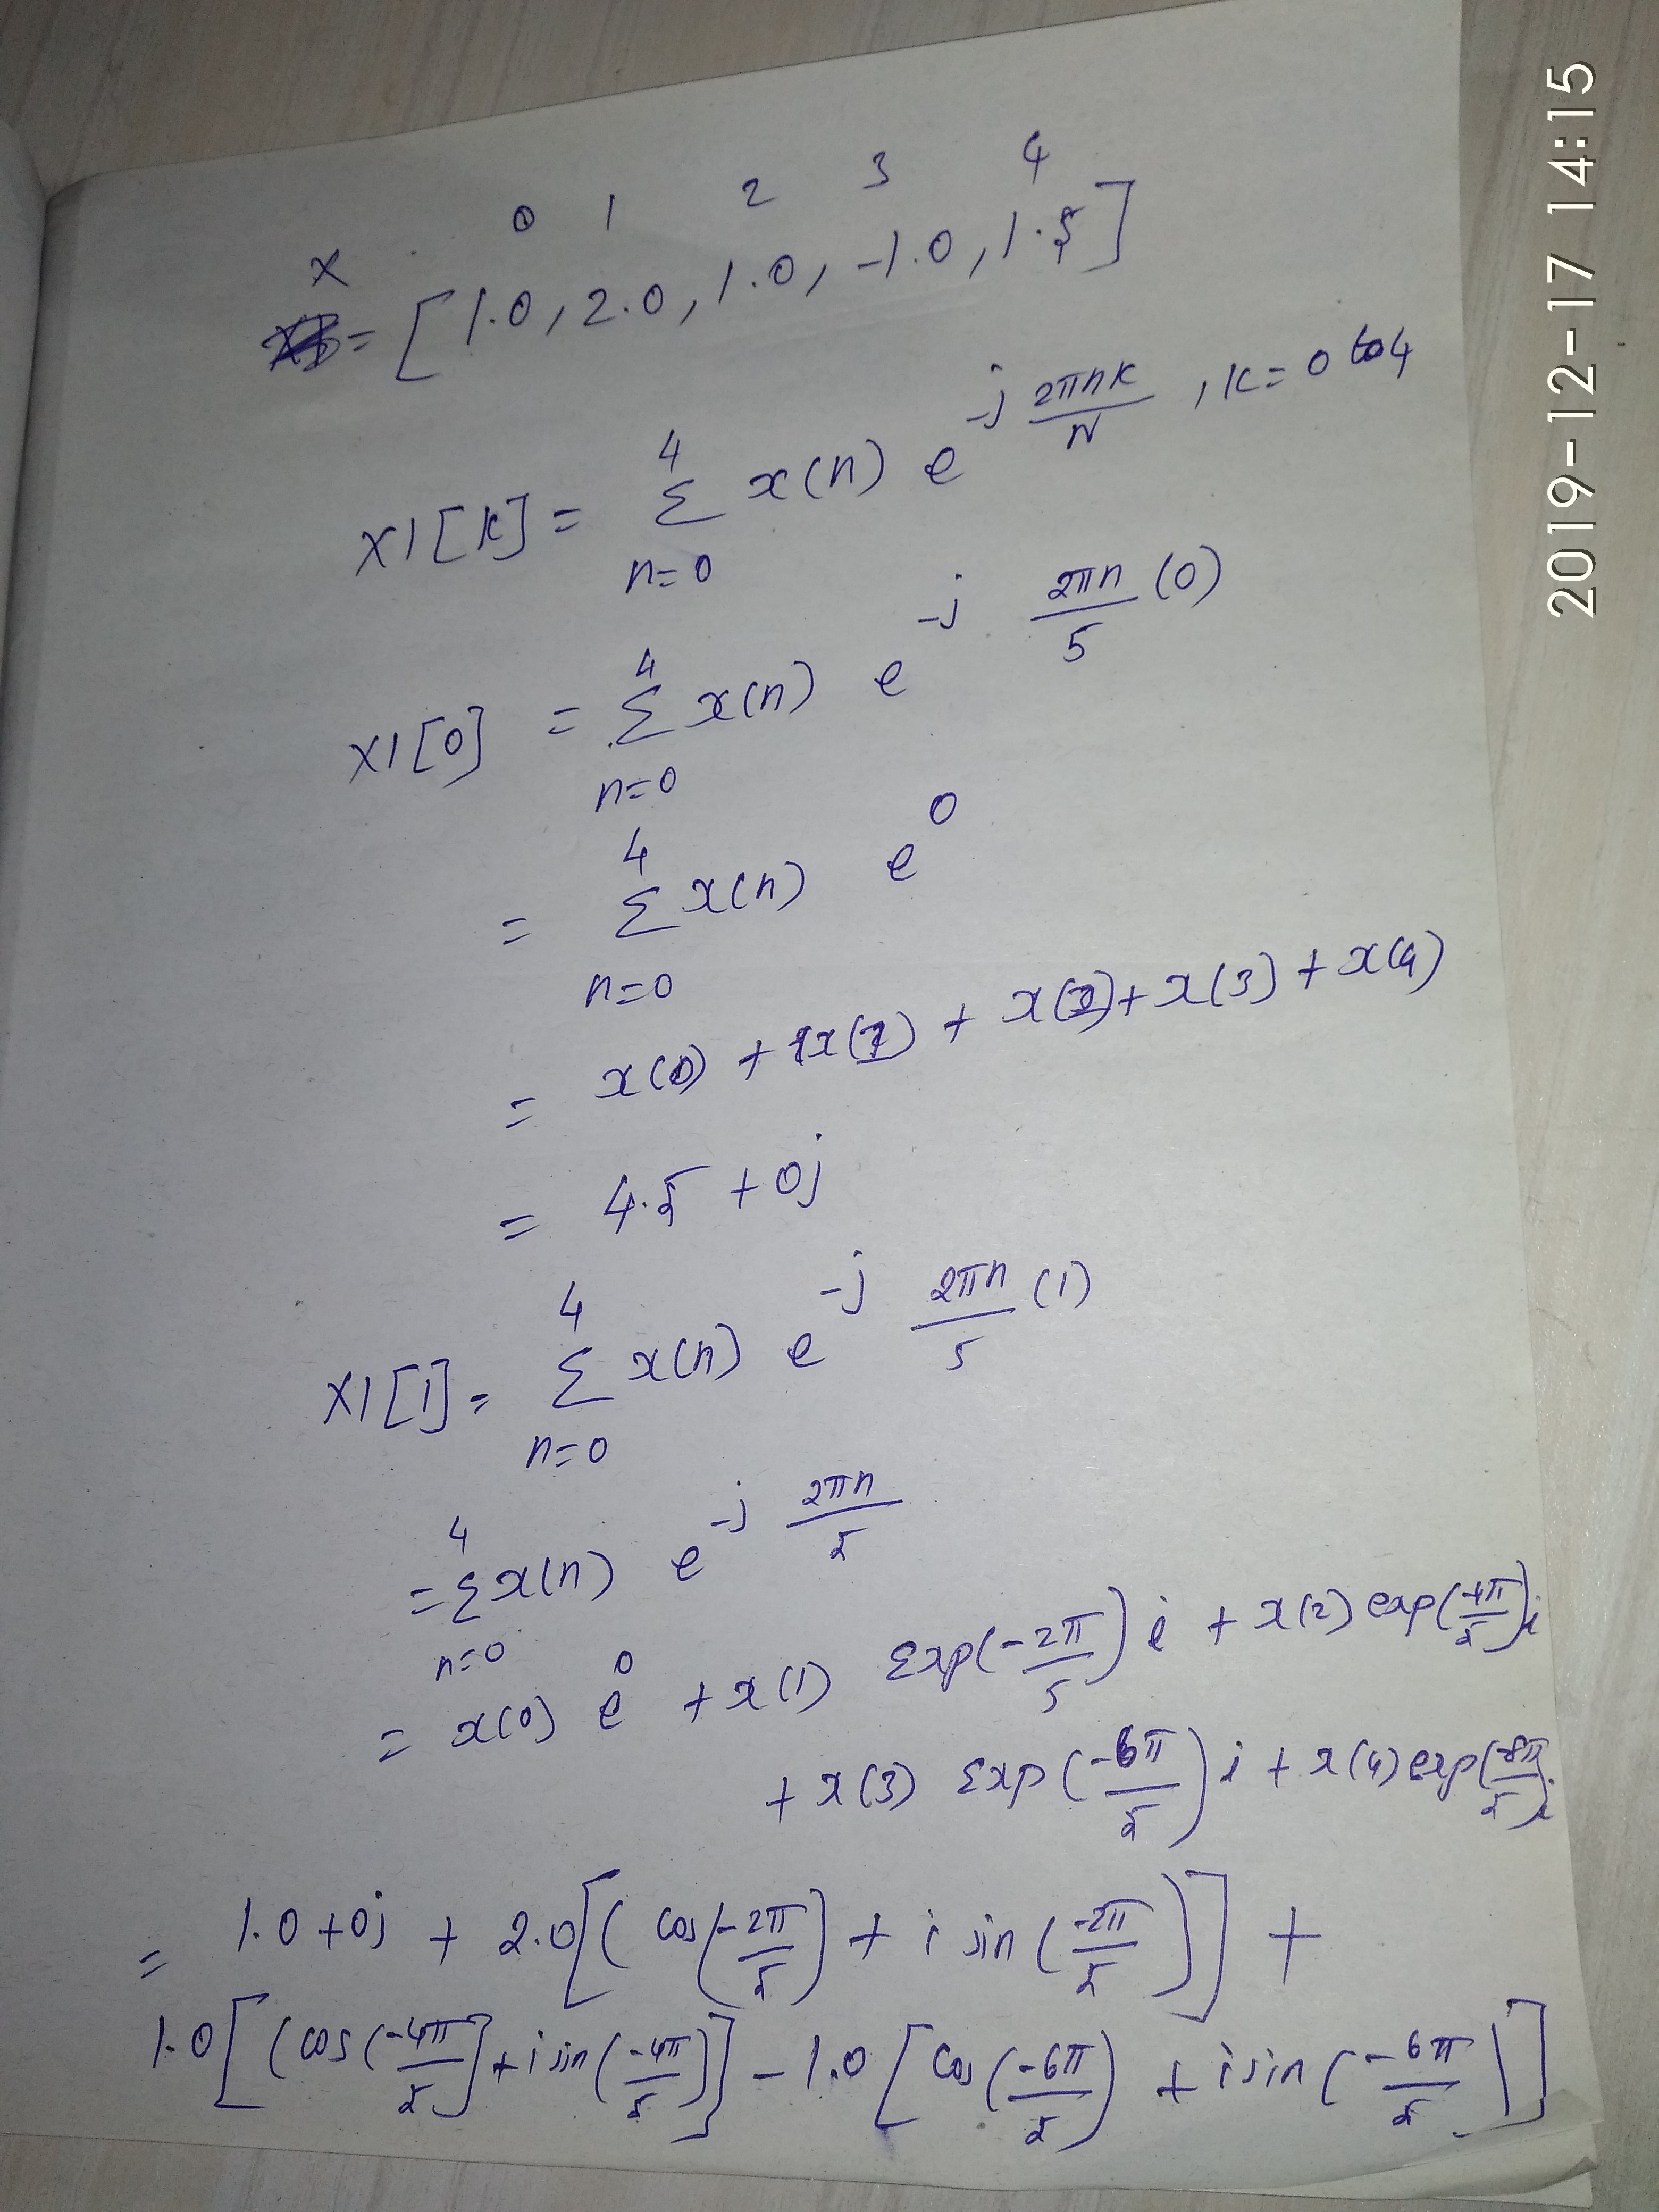 0 1 2 3 4
x = [1.0, 2.0, 1.0, -1.0, 1.5]
X1[k] = 4 Σ n=0 x(n) e -j 2πnk/N , k = 0 to 4
X1[0] = 4 Σ n=0 x(n) e -j 2πn/5 (0)
= 4 Σ n=0 x(n) e 0
= x(0) + x(1) + x(2) + x(3) + x(4)
= 4.5 + 0j
X1[1] = 4 Σ n=0 x(n) e -j 2πn/5 (1)
= 4 Σ n=0 x(n) e -j 2πn/5
= x(0) e 0 + x(1) Exp(-2π/5) i + x(2) exp(-4π/5) i
+ x(3) Exp(-6π/5) i + x(4) exp(-8π/5) i
= 1.0 + 0j + 2.0[(cos(-2π/5) + i sin(-2π/5)] +
1.0[(cos(-4π/5] + i sin(-4π/5)] - 1.0[cos(-6π/5) + i sin(-6π/5)]
2019-12-17 14:15